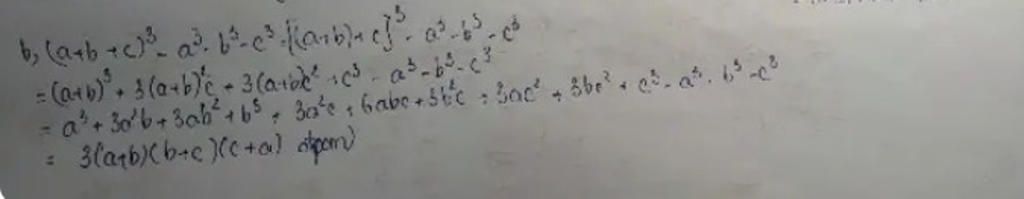 b, (a+b+c)³ - a³ - b³ - c³ = [(a+b)+c]³ - a³ - b³ - c³
= (a+b)³ + 3(a+b)²c + 3(a+b)c² + c³ - a³ - b³ - c³
= a³ + 3a²b + 3ab² + b³ + 3a²c + 6abc + 3b²c + 3ac² + 3bc² + c³ - a³ - b³ - c³
= 3(a+b)(b+c)(c+a) đpcm)